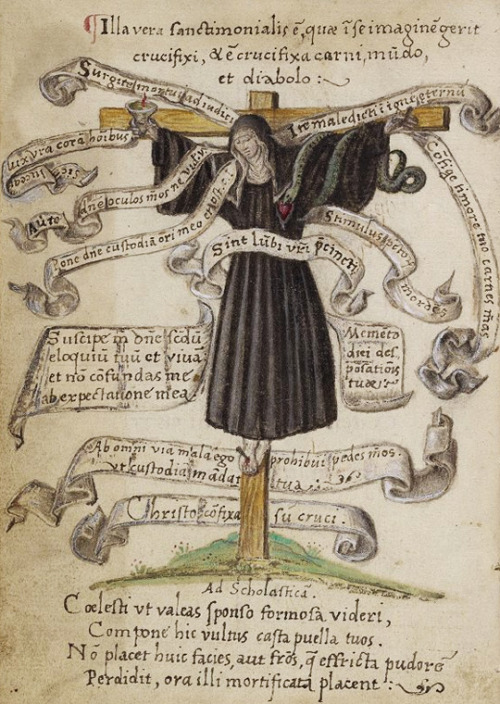 ¶Illa vera sanctimonialis ē, quæ ī se imaginē gerit
crucifixi, & ē crucifixa carni, mūdo,
et diabolo :~
Surgite mortui ad iudiciū
Ite maledicti ī ignē eternū
lux vr̄a corā hōibus
Sic luceat
Auerte oculos mos ne videāt
Pone dn̄e custodiā ori meo
Confige timore tuo carnes mēas
Stimulus
mordēs
Sint lūbi vr̄i p̄cincti
Suscipe m̄ dn̄e secdū
eloquiū tuū et viuā
et nō cōfundas me
ab expectatione mea.
Memēto
diei des
pōsatiōis
tuæ
Ab omni via mala ego prohibui pedes mos.
vt custodiā mādata tua :
Christo cōfixa sū cruci .
Ad Scholasticā.
Cœlesti vt valeas sponso formosa videri,
Compone hic vultus casta puella tuos.
Nō placet huic facies, aut frōs, q̄ effricta pudorē
Perdidit, ora illi mortificata placent :~